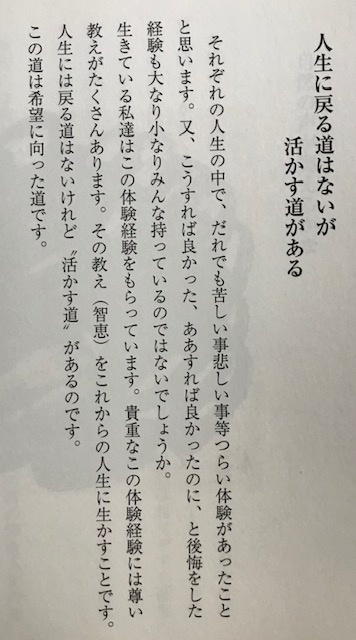 人生に戻る道はないが
活かす道がある
それぞれの人生の中で、だれでも苦しい事悲しい事等つらい体験があったこと
と思います。又、こうすれば良かった、ああすれば良かったのに、と後悔をした
経験も大なり小なりみんな持っているのではないでしょうか。
生きている私達はこの体験経験をもらっています。貴重なこの体験経験には尊い
教えがたくさんあります。その教え（智恵）をこれからの人生に生かすことです。
人生には戻る道はないけれど〝活かす道〟があるのです。
この道は希望に向った道です。